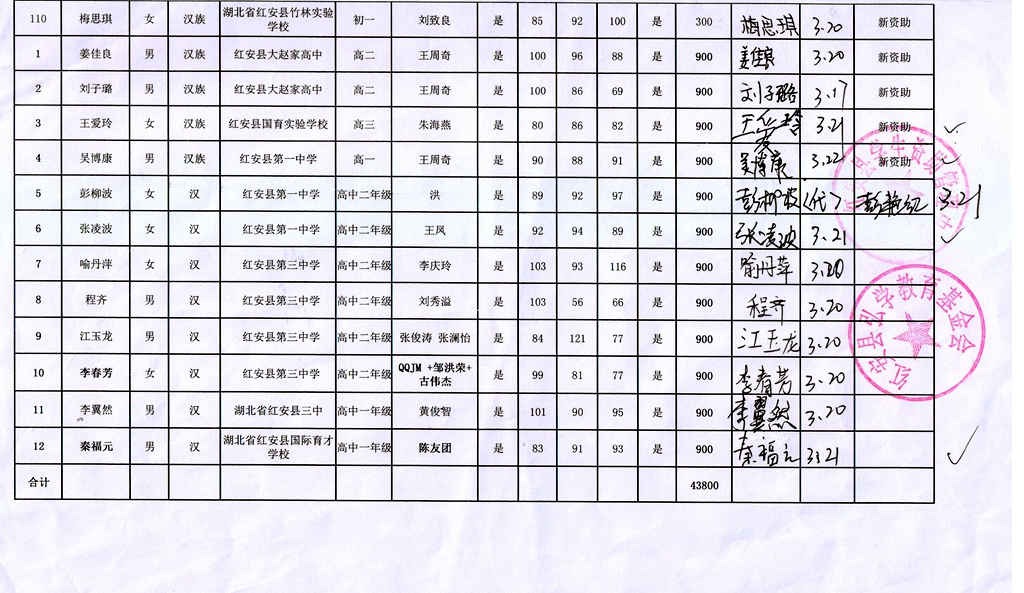 110 梅思琪 女 汉族 湖北省红安县竹林实验学校 初一 刘致良 是 85 92 100 是 300 梅思琪 3.20 新资助
1 姜佳良 男 汉族 红安县大赵家高中 高二 王周奇 是 100 96 88 是 900 姜佳良 3.20 新资助
2 刘子璐 男 汉族 红安县大赵家高中 高二 王周奇 是 100 86 69 是 900 刘子璐 3.17 新资助
3 王爱玲 女 汉族 红安县国育实验学校 高三 朱海燕 是 80 86 82 是 900 王爱玲 3.21 新资助
4 吴博康 男 汉族 红安县第一中学 高一 王周奇 是 90 88 91 是 900 吴博康 3.22 新资助
5 彭柳波 女 汉 红安县第一中学 高中二年级 洪 是 89 92 97 是 900 彭柳波(代) 彭艳红 3.21
6 张凌波 女 汉 红安县第一中学 高中二年级 王凤 是 92 94 89 是 900 张凌波 3.21
7 喻丹萍 女 汉 红安县第三中学 高中二年级 李庆玲 是 103 93 116 是 900 喻丹萍 3.20
8 程齐 男 汉 红安县第三中学 高中二年级 刘秀溢 是 103 56 66 是 900 程齐 3.20
9 江玉龙 男 汉 红安县第三中学 高中二年级 张俊涛 张澜怡 是 84 121 77 是 900 江玉龙 3.20
10 李春芳 女 汉 红安县第三中学 高中二年级 QQJM +邹洪荣+古伟杰 是 99 81 77 是 900 李春芳 3.20
11 李翼然 男 汉 湖北省红安县三中 高中一年级 黄俊智 是 101 90 95 是 900 李翼然 3.20
12 秦福元 男 汉 湖北省红安县国际育才学校 高中一年级 陈友团 是 83 91 93 是 900 秦福元 3.21
合计 43800
红安县学生资助管理中心
红安县弘学教育基金会